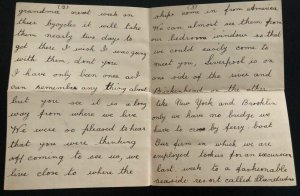 (2)
grandma next week on
their bycycles it will take
them nearly two days to
get there I wish I was going
with them, dont you
I have only been once as I
can remember any thing about
but you see it is a long
way from where we live
We were so pleased to hear
that you were thinking
off coming to see us, we
live close to where the
(3)
ships come in from America
We can almost see them from
our bedroom window so that
we could easily come to
meet you, Liverpool is on
one side of the river and
Birkenhead on the other
like New York and Brooklin
only we have no bridge we
have to cross by ferry boat
Our firm in which we are
employed took us for an excursion
last week to a fashionable
seaside resort called Llandudno